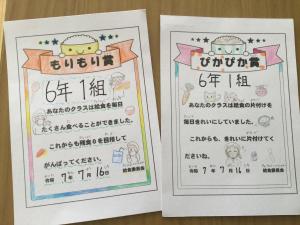 もりもり賞
6年1組
あなたのクラスは給食を毎日
たくさん食べることができました。
これからも残食0を目指して
がんばってください。
令和 7年 7月 16日
給食委員会
ぴかぴか賞
6年1組
あなたのクラスは給食の片付けを
毎日きれいにしていました。
これからも、きれいに片付けてく
ださいね。
令和 7年 7月 16日
給食委員会